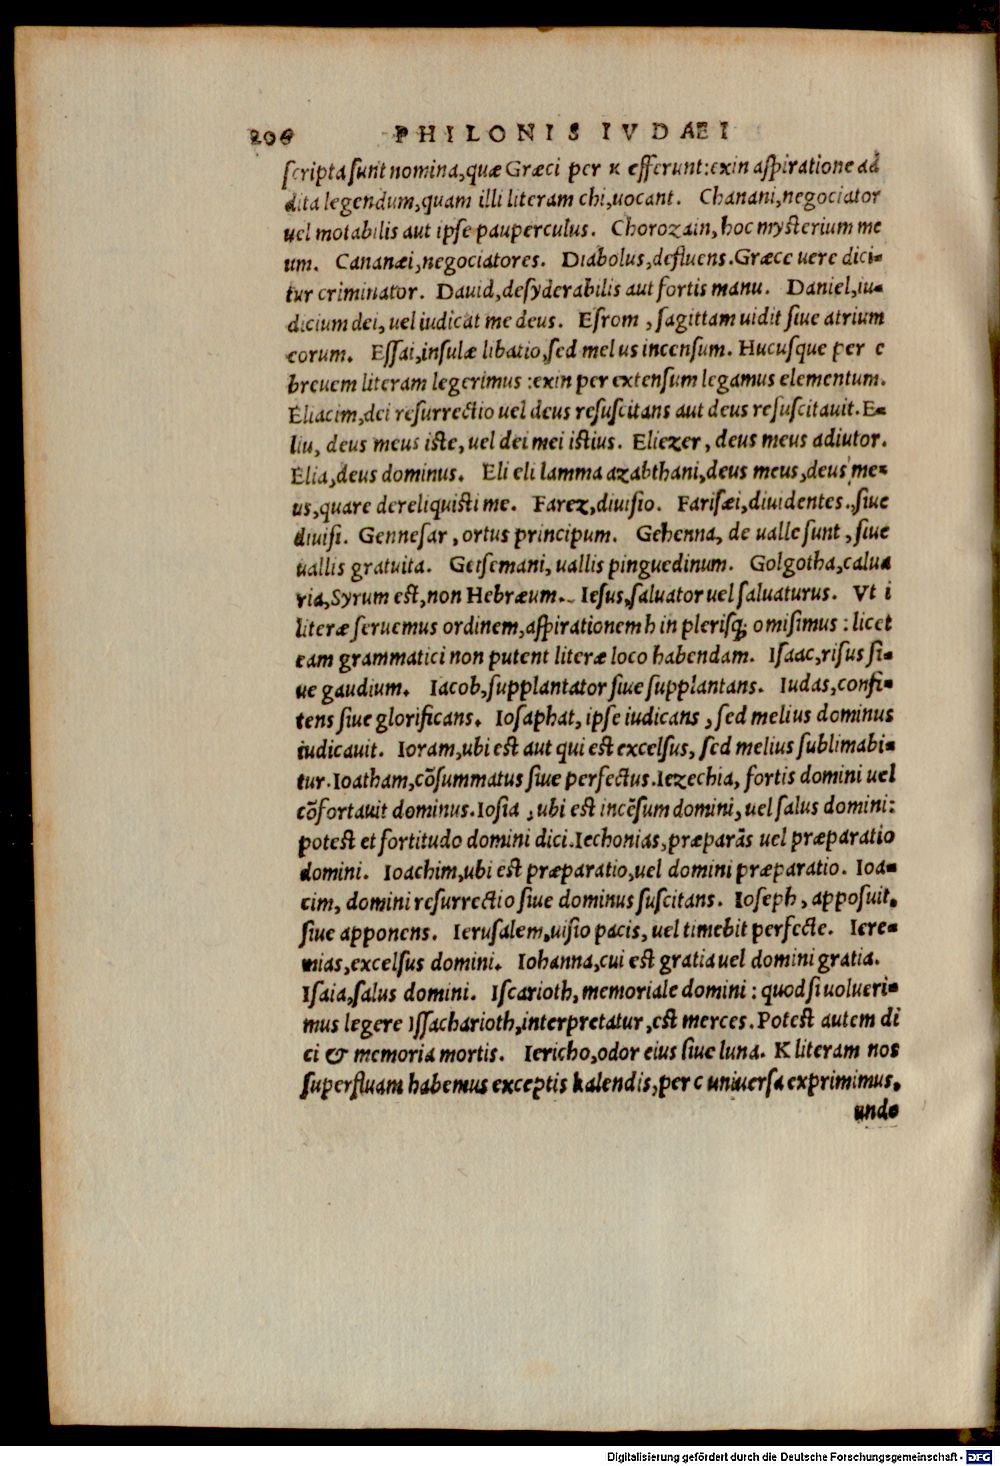 206 PHILONIS IVDAEI
scripta sunt nomina,quæ Græci per κ efferunt:exin aspiratione ad
dita legendum,quam illi literam chi,uocant. Chanani,negociator
uel motabilis aut ipse pauperculus. Chorozain, hoc mysterium me
um. Cananæi,negociatores. Diabolus,defluens.Græce uere dici-
tur criminator. Dauid,desyderabilis aut fortis manu. Daniel,iu-
dicium dei, uel iudicat me deus. Esrom , sagittam uidit siue atrium
eorum. Essai,insulæ libatio,sed mel us incensum. Hucusque per e
breuem literam legerimus :exin per extensum legamus elementum.
Eliacim,dei resurrectio uel deus resuscitans aut deus resuscitauit. E-
liu, deus meus iste, uel dei mei istius. Eliezer, deus meus adiutor.
Elia,deus dominus. Eli eli lamma azabthani,deus meus,deus me-
us,quare dereliquisti me. Farez,diuisio. Farisæi,diuidentes.,siue
diuisi. Gennesar , ortus principum. Gehenna, de ualle sunt , siue
uallis gratuita. Getsemani, uallis pinguedinum. Golgotha,calua
ria,Syrum est,non Hebræum. Iesus,saluator uel saluaturus. Vt i
literæ seruemus ordinem,aspirationem h in plerisq; omisimus : licet
eam grammatici non putent literæ loco habendam. Isaac,risus si-
ue gaudium. Iacob,supplantator siue supplantans. Iudas,confi-
tens siue glorificans. Iosaphat, ipse iudicans , sed melius dominus
iudicauit. Ioram,ubi est aut qui est excelsus, sed melius sublimabi-
tur.Ioatham,cōsummatus siue perfectus.Iezechia, fortis domini uel
cōfortauit dominus.Iosia , ubi est incēsum domini, uel salus domini:
potest et fortitudo domini dici.Iechonias,præparās uel præparatio
domini. Ioachim,ubi est præparatio,uel domini præparatio. Ioa-
cim, domini resurrectio siue dominus suscitans. Ioseph, apposuit,
siue apponens. Ierusalem,uisio pacis, uel timebit perfecte. Iere-
mias,excelsus domini. Iohanna,cui est gratia uel domini gratia.
Isaia,salus domini. Iscarioth, memoriale domini : quod si uolueri-
mus legere Issacharioth,interpretatur,est merces. Potest autem di
ci & memoria mortis. Iericho,odor eius siue luna. K literam nos
superfluam habemus exceptis kalendis,per c uniuersa exprimimus,
unde
Digitalisierung gefördert durch die Deutsche Forschungsgemeinschaft - DFG